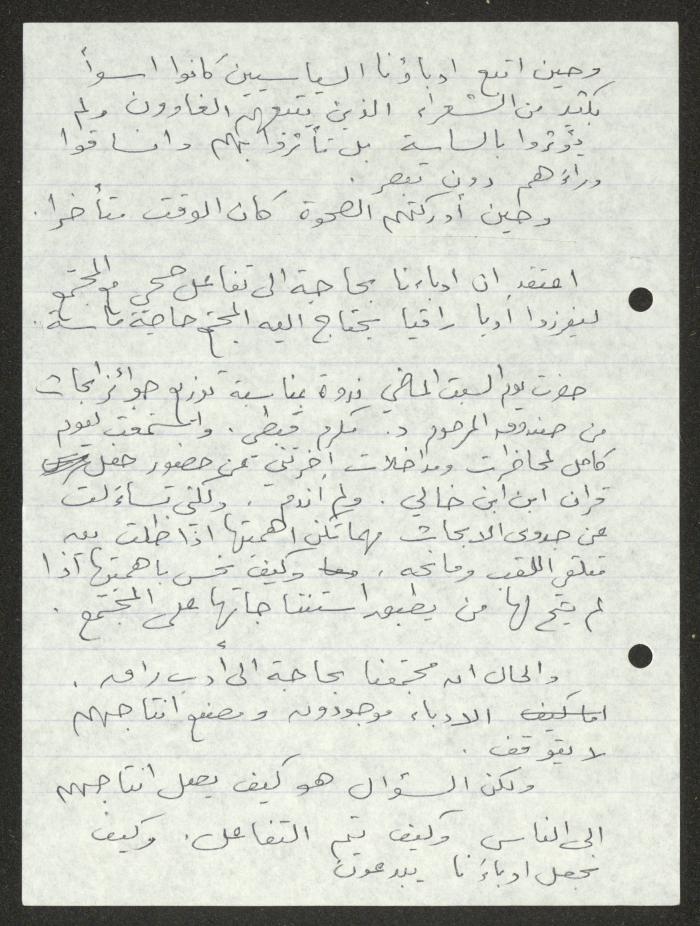 وحين اتبع ادباؤنا السياسيين كانوا اسوأ
بكثير من الشعراء الذين يتبعهم الغاوون ولم
يؤثروا بالساسة بل تأثروا بهم وانساقوا
وراءهم دون تبصر.
وحين أدركتهم الصحوة كان الوقت متأخرا.
اعتقد ان ادباءنا بحاجة الى تفاعل صحي مع المجتمع
ليفرزوا أدبا راقيا يحتاج اليه المجتمع حاجة ماسة.
حضرت يوم السبت الماضي ندوة بمناسبة توزيع جوائز ابحاث
من صندوق المرحوم د. مكرم قبطي. واستمعت ليوم
كامل لمحاضرات ومداخلات أخرتني عن حضور حفل
قران ابن ابن خالي. ولم أندم. ولكني تساءلت
عن جدوى الابحاث مهما تكن اهميتها اذا ظلت بين
متلقي اللقب ومانحه، وكيف نحس باهميتها اذا
لم يتح لها من يطبق استنتاجاتها على المجتمع.
والحال ان مجتمعنا بحاجة الى أدب راق.
اما كيف الادباء موجودون ومصنع انتاجهم
لا يتوقف.
ولكن السؤال هو كيف يصل انتاجهم
الى الناس وكيف يتم التفاعل. وكيف
نجعل ادباءنا يبدعون